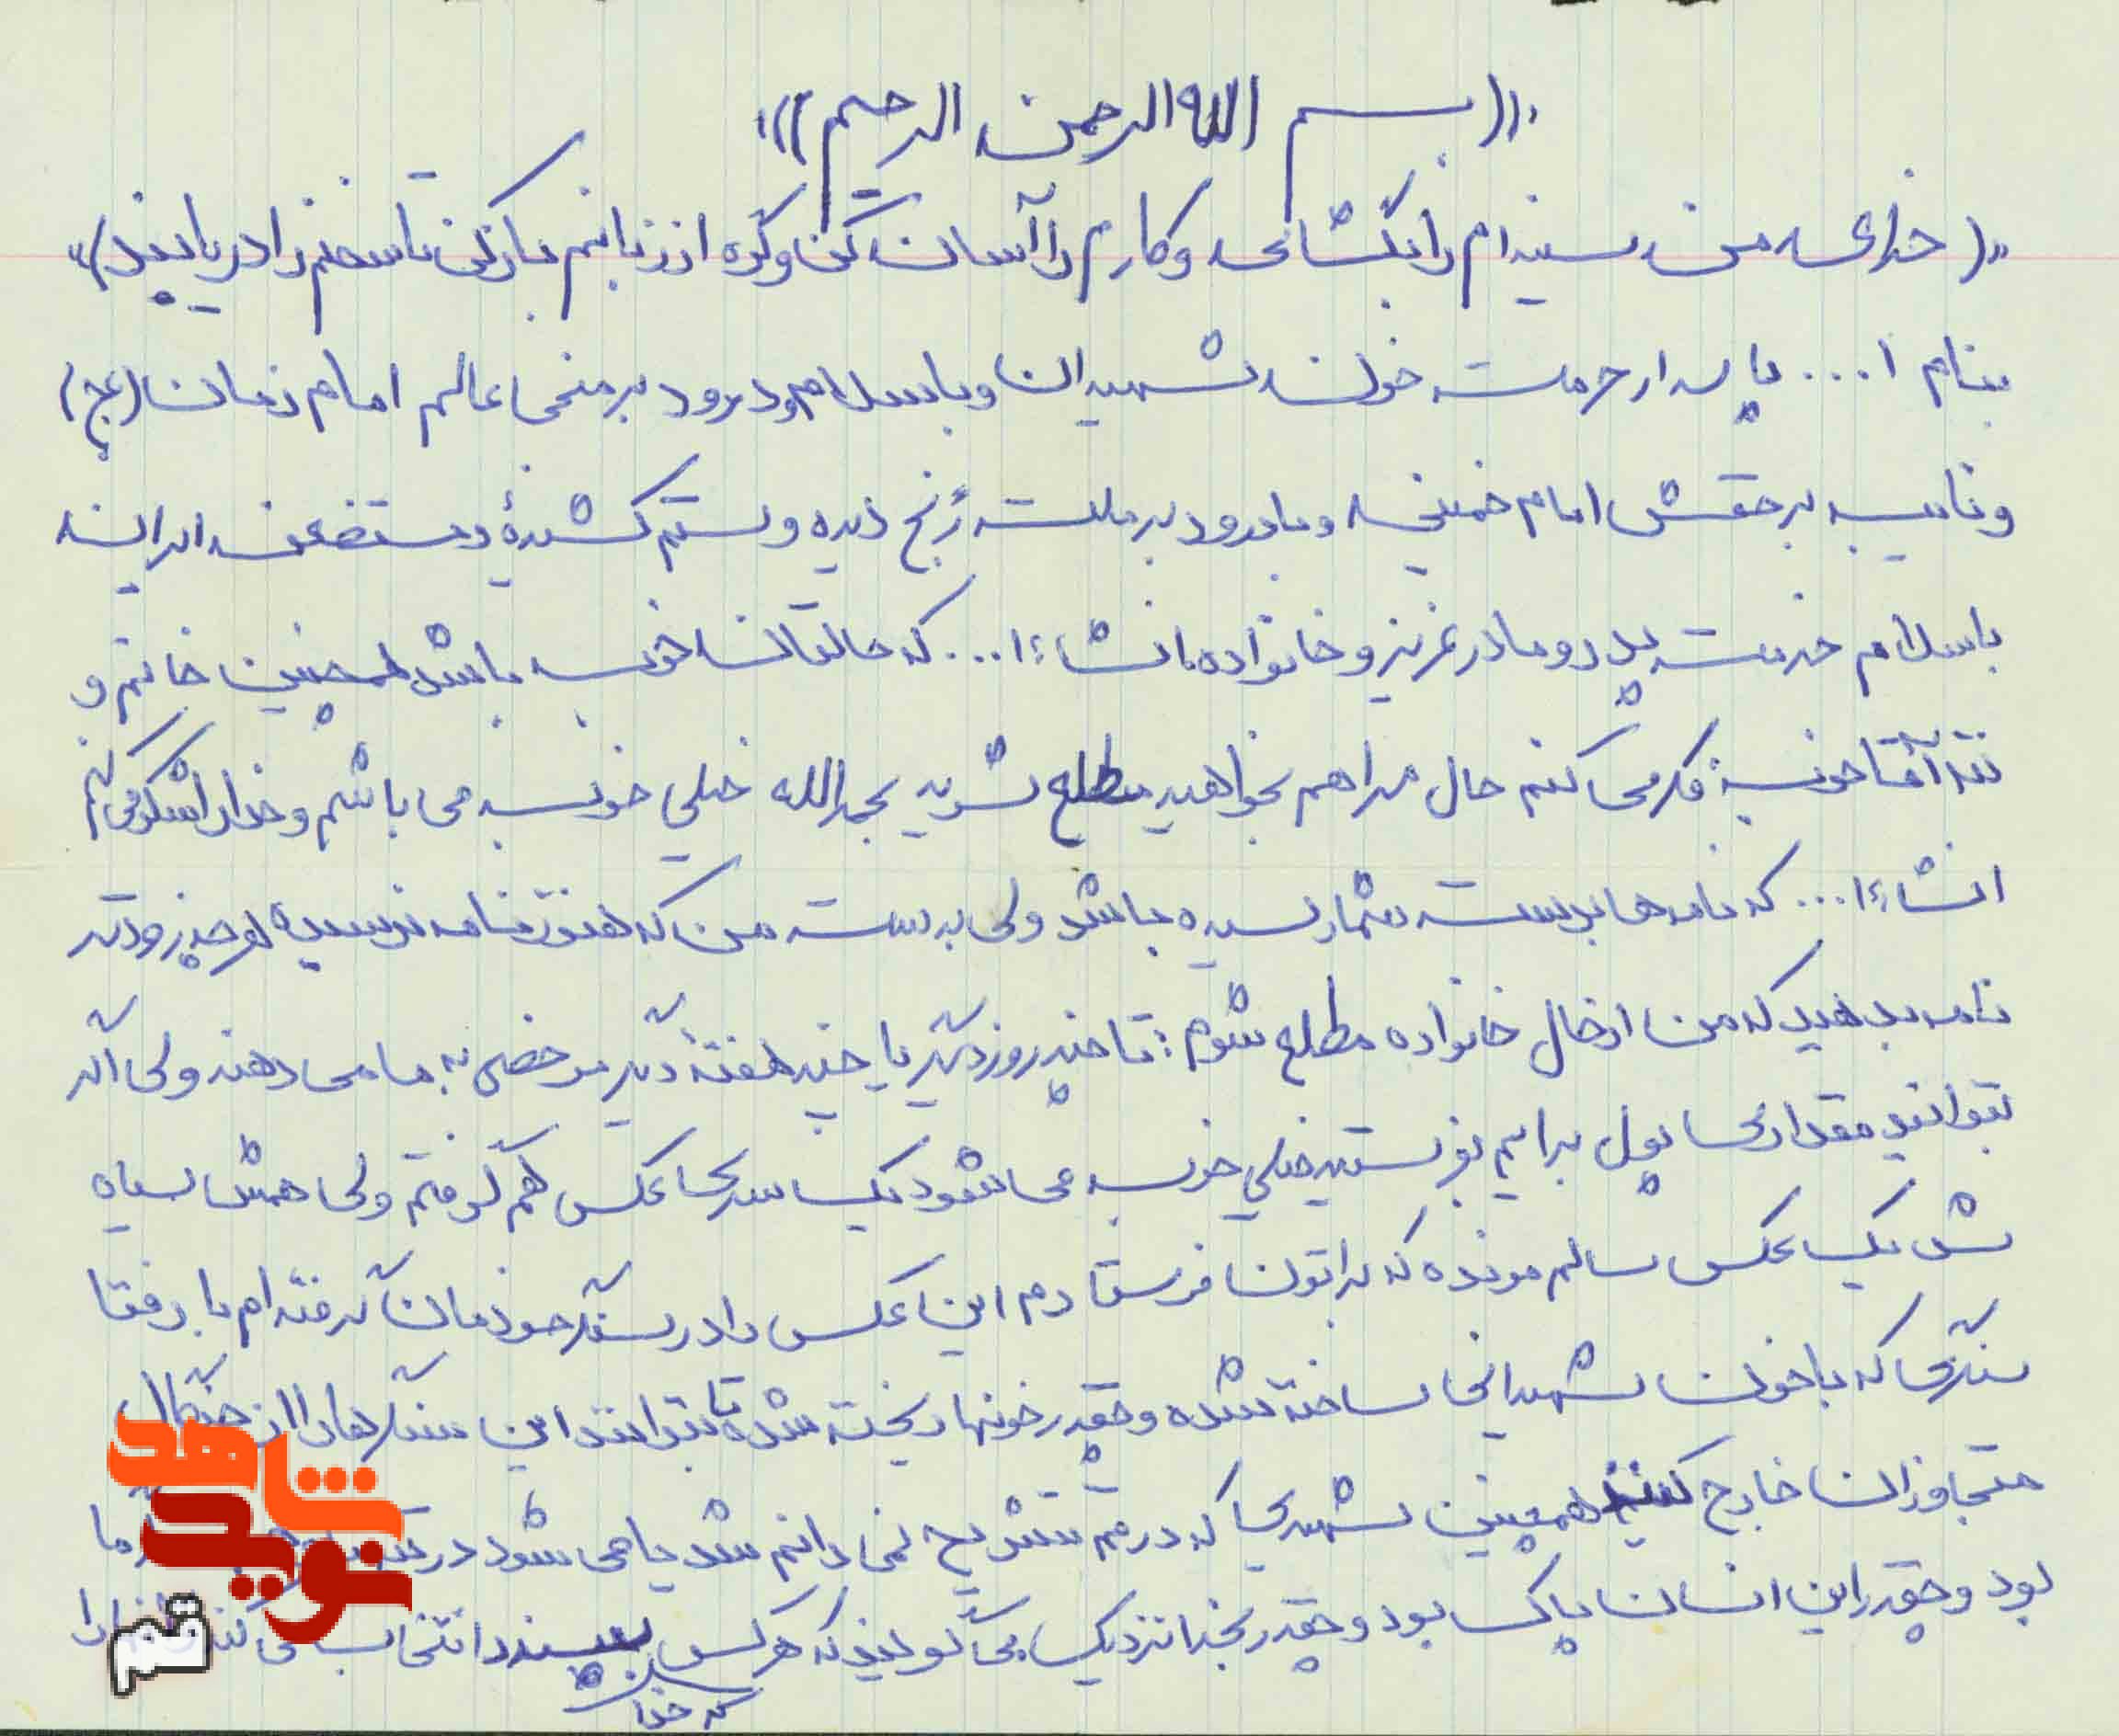 ((بسم الله الرحمن الرحیم))
((خدای من سینه ام را بگشای و کارم را آسان کن و گره از زبانم باز کن تا سخنم را دریابید))
بنام ا... پاسدار حرمت خون شهیدان و با سلام و درود بر منجی عالم امام زمان (عج)
و نایب برحقش امام خمینی و با درود بر ملت رنج دیده و ستم کشیدهٔ و مستضعف ایران
با سلام خدمت پدر و مادر عزیز و خانواده انشاءا... که حالتان خوب باشد همچنین خانم و
ننه آقا خوب فکر می کنم حال مرا هم بخواهید مطلع شوید بحمدالله خیلی خوب می باشم و خدا را شکر می کنم
انشاءا... که نامه ها بدست شما رسیده باشد ولی به دست من که هنوز نامه نرسیده هر چه زودتر
نامه بدهید که من از حال خانواده مطلع شوم: تا چند روز دیگر یا چند هفته دیگر مرخصی به ما می دهند ولی اگر
بتوانید مقداری پول برایم بفرستید خیلی خوب می شود یک سری عکس هم گرفتم ولی همش سیاه
شد یک عکس سالم مونده که براتون فرستادم این عکس را در سنگر خودمان گرفته ام با رفقا
سنگری که با خون شهیدانی ساخته شده و چقدر خونها ریخته شده تا بتوانند این سنگرها را از چنگال
متجاوزان خارج کنند همچنین شهیدی که در متن تشریح نمی دانم شد یا می شود در ما
بود و چقدر این انسان پاک بود و چقدر بخدا نزدیک می گویند که هر کس بپسندد انتخاب می کند
که خدا
شاهد
نوید
قم